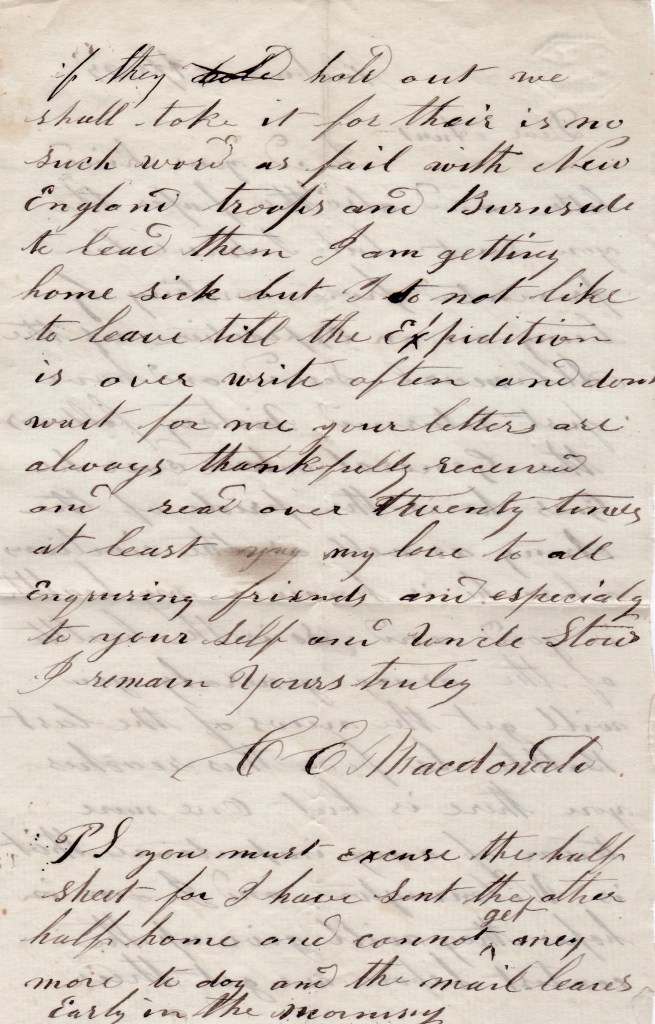 if they hold out we
shall take it for their is no
such word as fail with New
England troops and Burnside
to lead them I am getting
home sick but I do not like
to leave till the Expidition
is over write often and dont
wait for me your letters are
always thankfully received
and read over twenty times
at least my love to all
Enquring friends and especialy
to your self and Uncle Stow
I remain Yours truley
C E Macdonald
PS you must excuse the half
sheet for I have sent the other
half home and cannot get aney
more to day and the mail leaves
Early in the morning